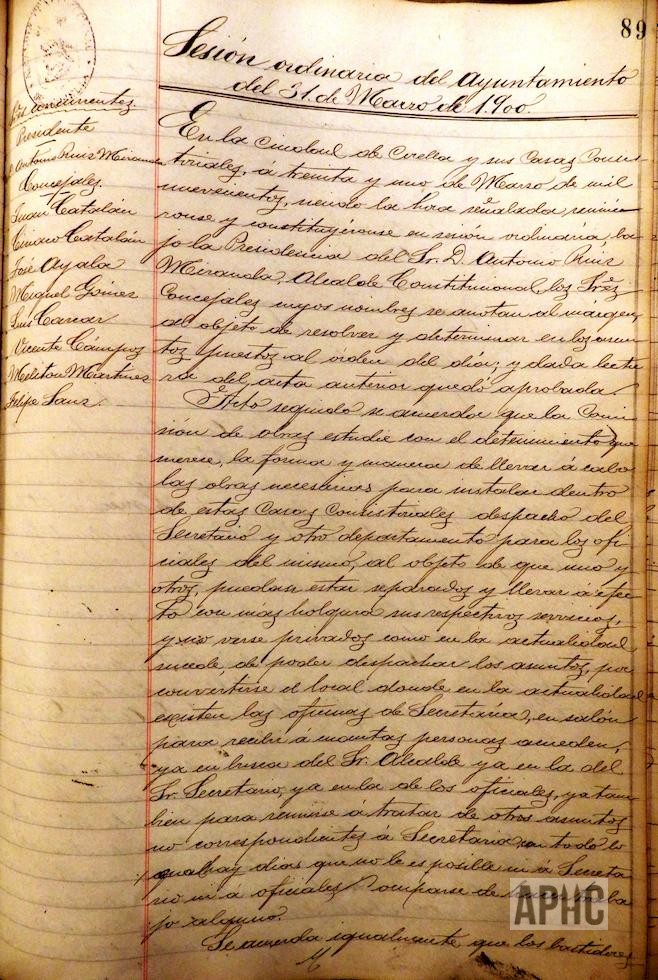 89
Sesión ordinaria del Ayuntamiento
del 31. de Marzo de 1.900.
Sres concurrentes
Presidente
D Antonio Ruiz Miranda
Concejales.
Juan Catalán
Ciriaco Catalán
José Ayala
Miguel Gómez
Luis
Vicente Campos
Meliton Martinez
Felipe Sanz.
En la ciudad de Corella y sus Casas Consis-
toriales, á treinta y uno de Marzo de mil
novecientos, siendo la hora señalada, reunie-
ronse y constituyéronse en sesión ordinaria ba-
jo la Presidencia del Sr. D. Antonio Ruiz
Miranda, Alcalde Constitucional, los Sres
Concejales cuyos nombres se anotan al márgen,
al objeto de resolver y determinar en los asun-
tos puestos al orden del día; y dada lectu-
ra del acta anterior quedó aprobada.
Acto seguido se acuerda: que la Comi-
sión de obras estudie con el detenimiento que
merece, la forma y manera de llevar á cabo
las obras necesarias para instalar dentro
de estas Casas Consistoriales despacho del
Secretario y otro departamento para los ofi-
ciales del mismo, al objeto de que uno y
otros, puedan estar separados y llevar á efec-
to con más holgura sus respectivos servicios,
y no verse privados como en la actualidad
sucede, de poder despachar los asuntos, por
convertirse el local donde en la actualidad
existen las oficinas de Secretaría, en salón
para recibir á cuantas personas acuden,
ya en busca del Sr. Alcalde ya en la del
Sr. Secretario, ya en la de los oficiales, ya tam-
bien para reunirse á tratar de otros asuntos
no correspondientes á Secretaria, con todo lo
cual hay dias que no les es posible ni á Secreta-
rio ni á oficiales ocuparse de traba-
jo alguno.
Se acuerda igualmente que los bastidores
APHC